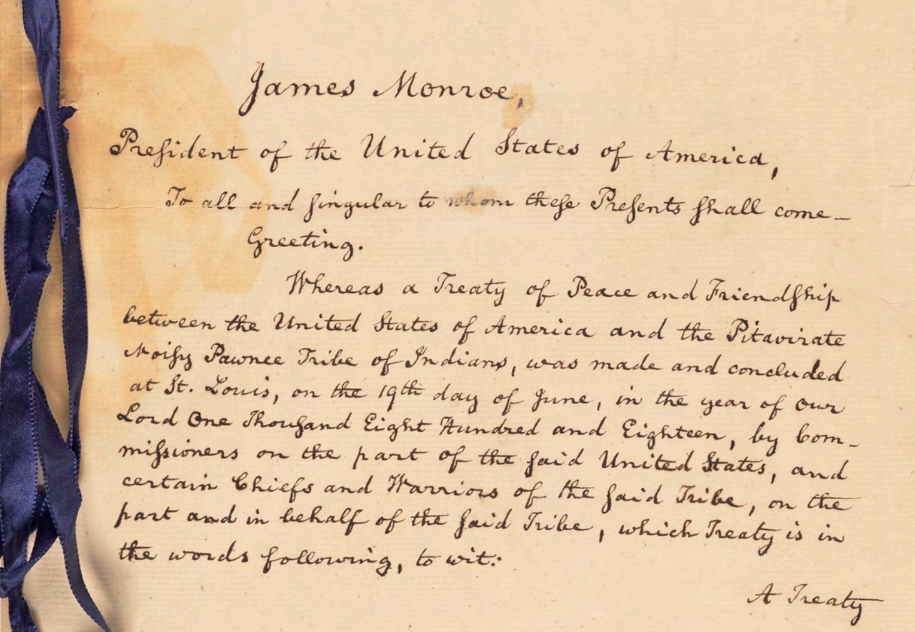 James Monroe,
President of the United States of America,
To all and singular to whom these Presents shall come–
Greeting.
Whereas a Treaty of Peace and Friendship
between the United States of America and the Pitavirate
Noisy Pawnee Tribe of Indians, was made and concluded
at St. Louis, on the 19th day of June, in the year of our
Lord One Thousand Eight Hundred and Eighteen, by Com–
missioners on the part of the said United States, and
certain Chiefs and Warriors of the said Tribe, on the
part and in behalf of the said Tribe, which Treaty is in
the words following, to wit:
A Treaty